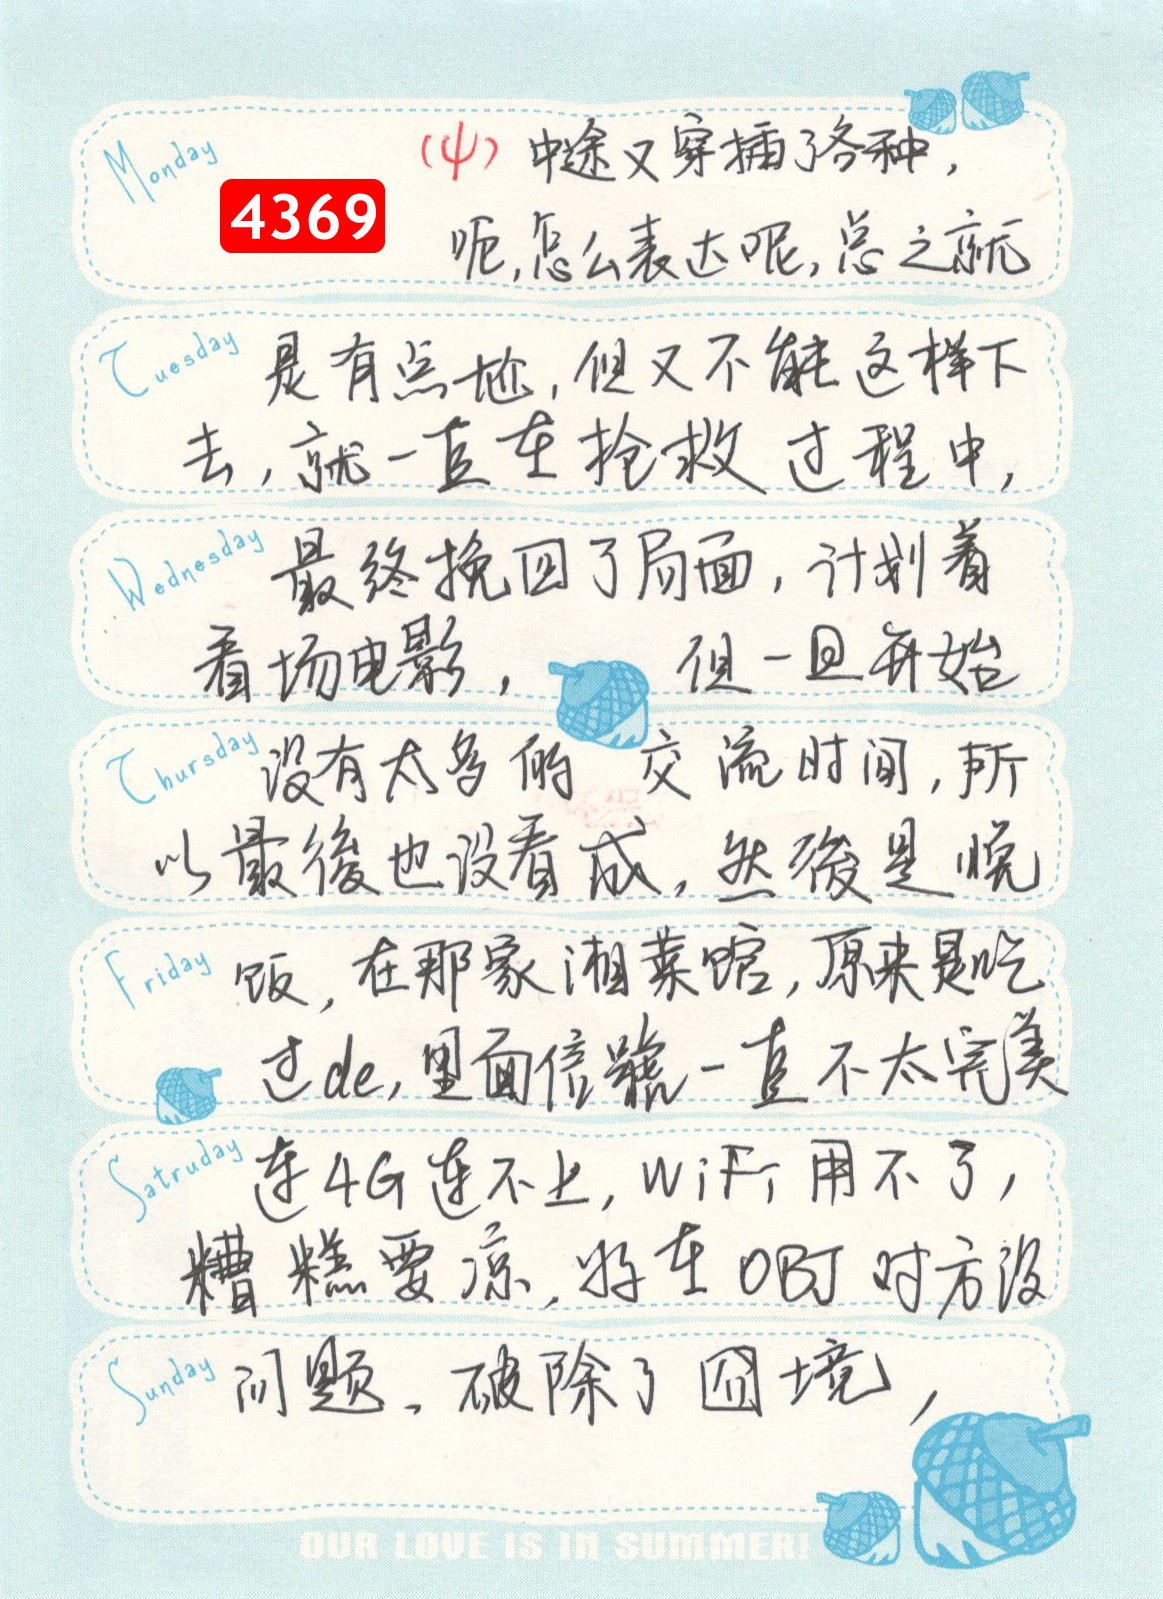 Monday
(4) 中途又穿插了各种,
4369
呃,怎么表达呢,总之就
Tuesday
是有点尬,但又不能这样下
去,就一直在抢救过程中,
Wednesday
最终挽回了局面,计划着
看场电影, 但一旦开始
Thursday
没有太多的 交流时间,所
以最後也没看成,然後是晚
Friday
饭,在那家湘菜馆,原来是吃
过de,里面信號一直不太完美
Satruday
连4G连不上,WiFi用不了,
糟糕要凉,好在OBJ对方没
Sunday
问题、破除了囧境,
OUR LOVE IS IN SUMMER!